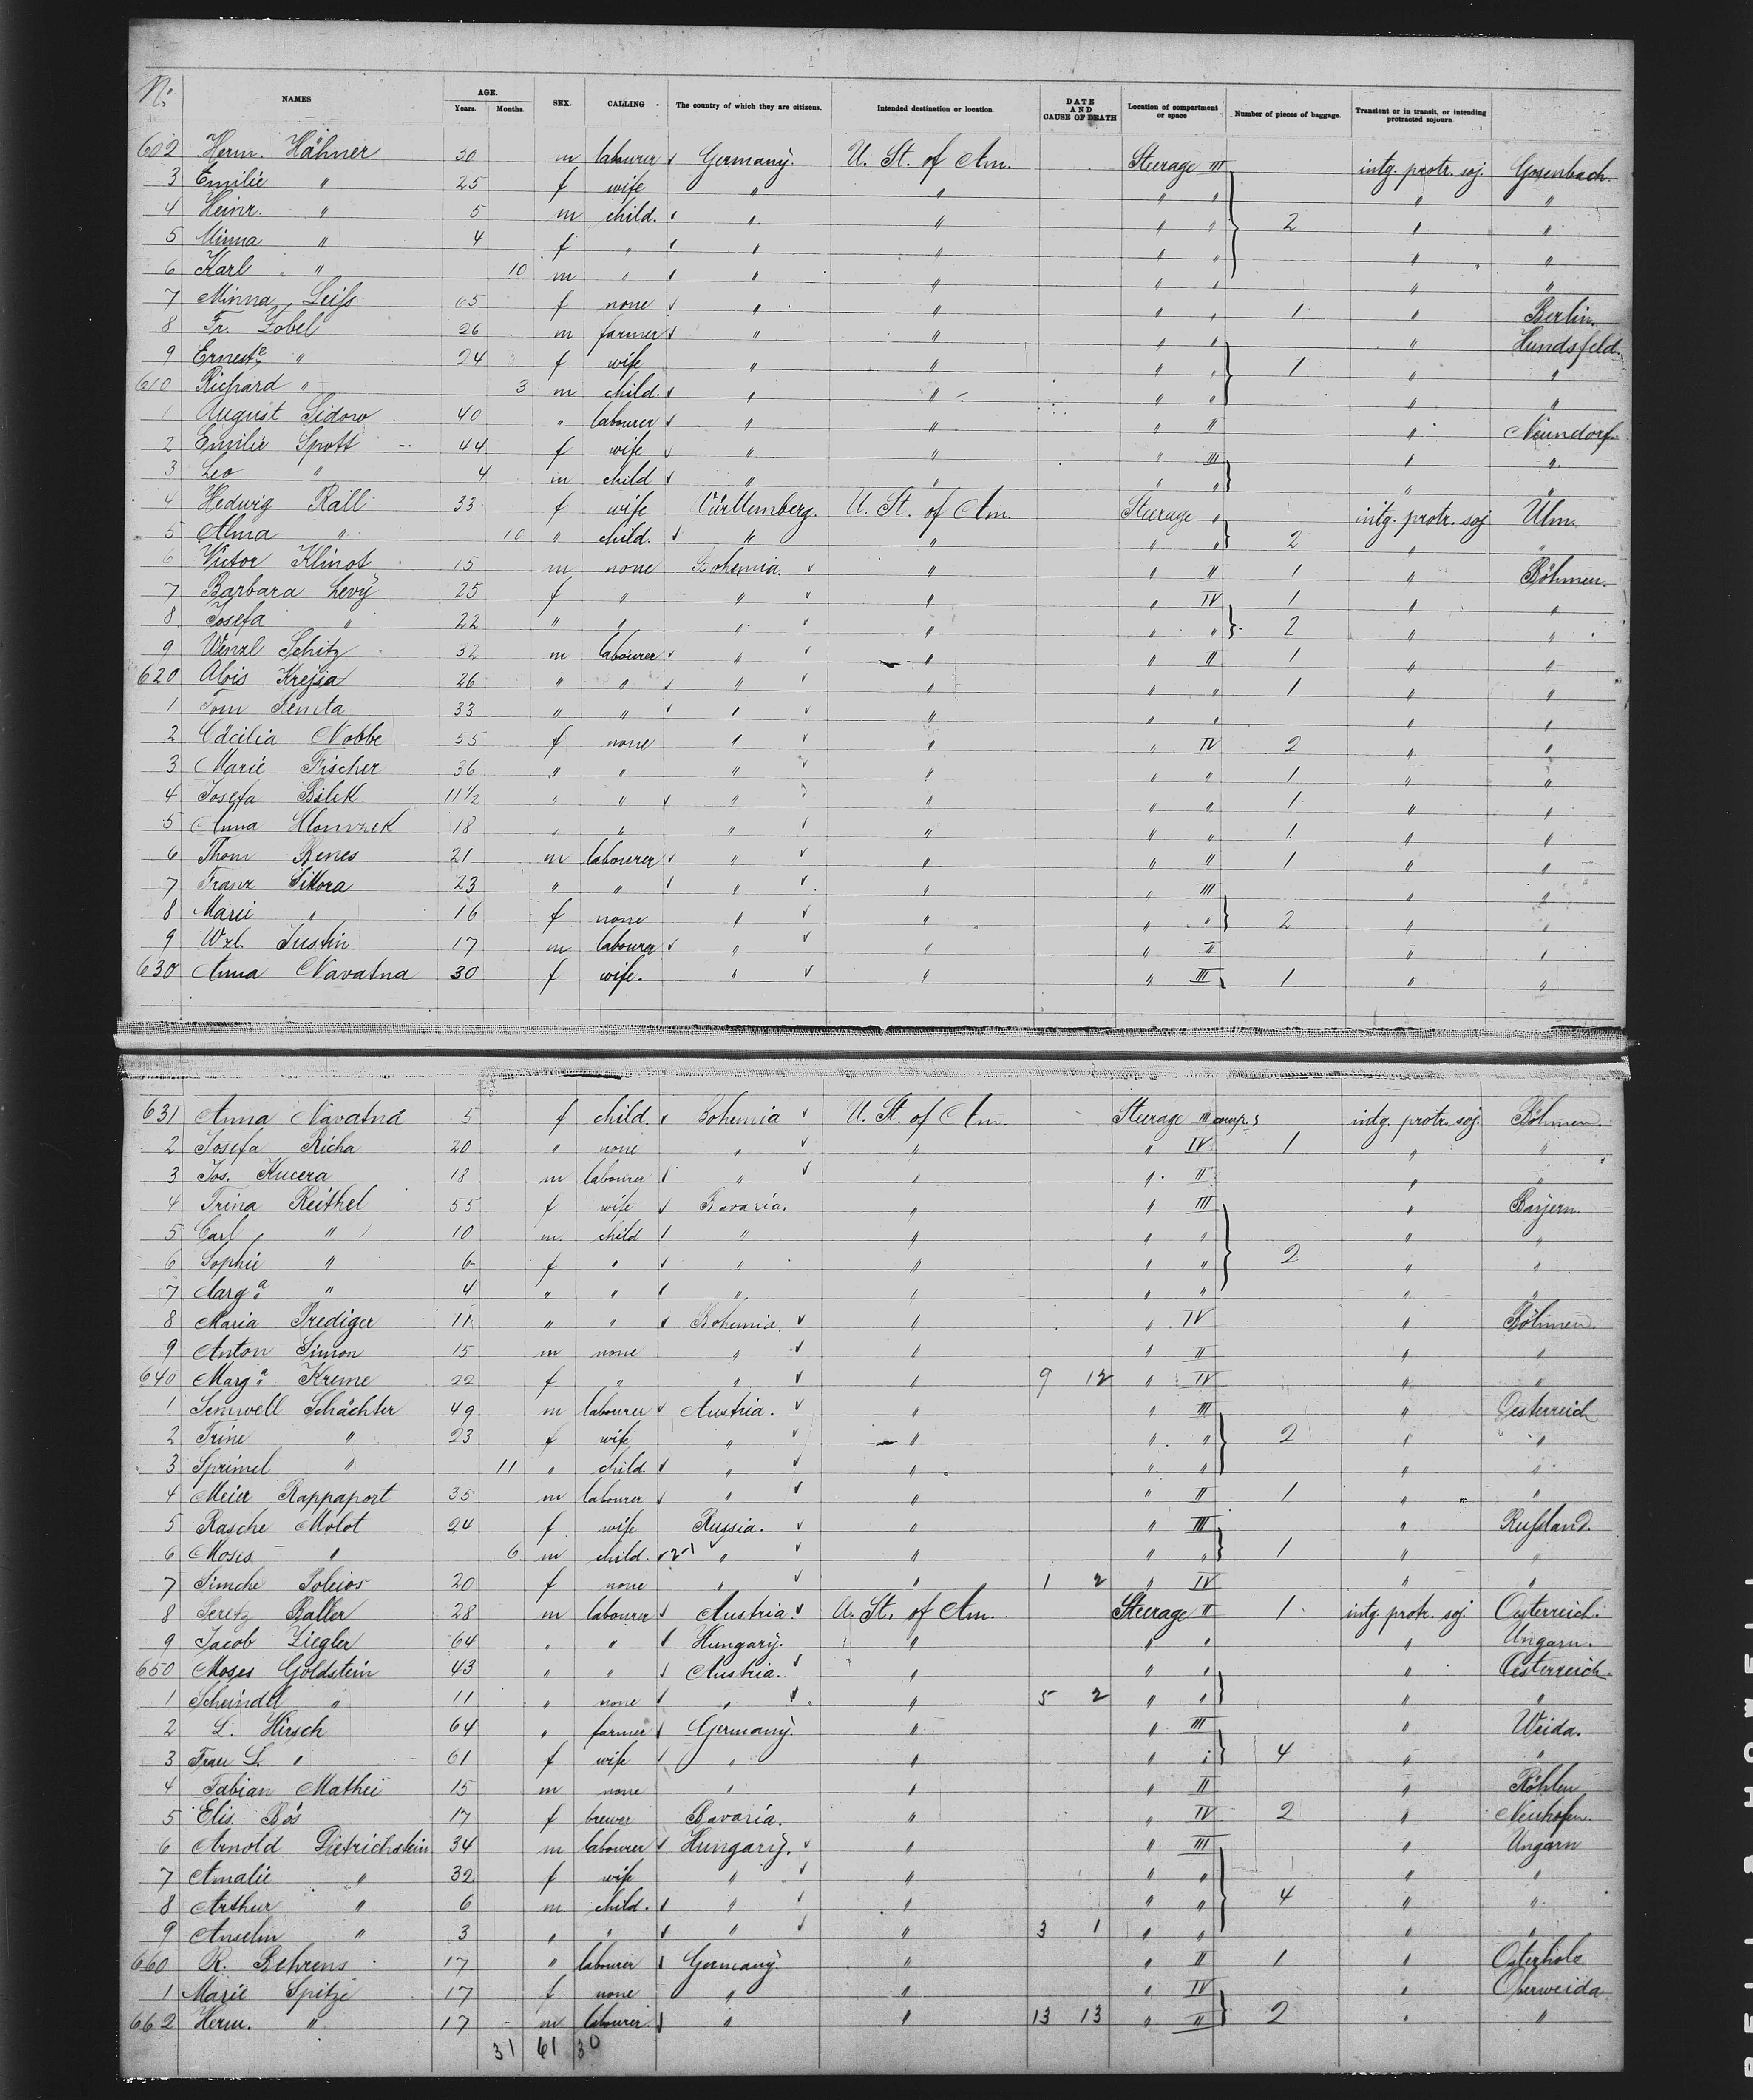 No. NAMES AGE. Years. Months. SEX. CALLING. The country of which they are citizens. Intended destination or location. DATE AND CAUSE OF DEATH Location of compartment or space Number of pieces of baggage. Transient or in transit, or intending protracted sojourn.
602 Herm. Hähner 30 m labourer Germany. U. St. of Am. Steerage III intg. protr. soj. Gosenbach
3 Emilie " 25 f wife " " " " " "
4 Heinr. " 5 m child. " " " " 2 " "
5 Minna " 4 f " " " " " " "
6 Karl " 10 m " " " " " " "
7 Minna Leiss 65 f none " " " " 1 " Berlin.
8 Fr. Zobel 26 m farmer " " " " " Hundsfeld.
9 Erneste " 24 f wife " " " " 1 " "
610 Richard " 3 m child. " " " " " "
1 August Sidow 40 " labourer " " " II " Neundorf
2 Emilie Spott 44 f wife " " " III " "
3 Leo " 4 m child " " " " " "
4 Hedwig Rall 33 f wife Württemberg. U. St. of Am. Steerage " intg. protr. soj Ulm.
5 Alma " 10 " child. " " " " 2 " "
6 Victor Klinot 15 m none Bohemia. " " II 1 " Böhmen.
7 Barbara Levy 25 f " " " " IV 1 " "
8 Josefa " 22 " " " " " " 2 " "
9 Wenzl Schitz 32 m labourer " " " II 1 " "
620 Alois Krejsa 26 " " " " " " 1 " "
1 Tom 33 " " " " " " " "
2 Cäcilia Nobbe 55 f none " " " IV 2 " "
3 Marie Fischer 36 " " " " " " 1 " "
4 Josefa Bilek 11½ " " " " " " 1 " "
5 Anna 18 " " " " " " 1 " "
6 Thom Benes 21 m labourer " " " II 1 " "
7 Franz Sikora 23 " " " " " III " "
8 Marie " 16 f none " " " " 2 " "
9 Wzl. Justin 17 m labourer " " " II " "
630 Anna Navatna 30 f wife. " " " III 1 " "
631 Anna Navatná 5 f child. Bohemia U. St. of Am. Steerage III comp. intg. protr. soj. Böhmen.
2 Josefa Richa 20 " none " " " IV 1 " "
3 Jos. Kucera 18 m labourer " " " II " "
4 Trina Reithel 55 f wife Bavaria. " " III " Bayern.
5 Carl " 10 m child " " " " " "
6 Sophie " 6 f " " " " " 2 " "
7 Marga " 4 " " " " " " " "
8 Maria Prediger 11 " " Bohemia. " " IV " Böhmen.
9 Anton Simon 15 m none " " " II " "
640 Marga Kreme 22 f " " " 9 12 " IV " "
1 Semwell Schächter 49 m labourer Austria. " " III " Oesterreich
2 Trine " 23 f wife " " " " 2 " "
3 Sprimel " 11 " child. " " " " " "
4 Meier Rappaport 35 m labourer " " " II 1 " "
5 Rasche Molot 24 f wife Russia. " " III " Russland.
6 Moses " 6 m child. 2-1 " " " " 1 " "
7 Simche 20 f none " " 1 2 " IV " "
8 Baller 28 m labourer Austria. U. St. of Am. Steerage II 1 intg. protr. soj. Oesterreich.
9 Jacob Ziegler 64 " " Hungary. " " " " Ungarn.
650 Moses Goldstein 43 " " Austria. " " " " Oesterreich.
1 Scheindel " 11 " none " " 5 2 " " " "
2 L. Hirsch 64 " farmer Germany. " " III " Weida.
3 Frau L. " 61 f wife " " " " 4 " "
4 Fabian Mathei 15 m none " " " II " Röhlen
5 Elis. Bös 17 f brewer Bavaria. " " IV 2 " Neuhofen.
6 Arnold Dietrichstein 34 m labourer Hungary. " " III " Ungarn
7 Amalie " 32 f wife " " " " " "
8 Arthur " 6 m child. " " " " 4 " "
9 Anselm " 3 " " " " 3 1 " " " "
660 R. Behrens 17 " labourer Germany. " " II 1 " Osterholz
1 Marie Spitze 17 f none " " " IV " Oberweida
662 Herm. " 17 m labourer. " " 13 13 " II 2 " "
31 61 30